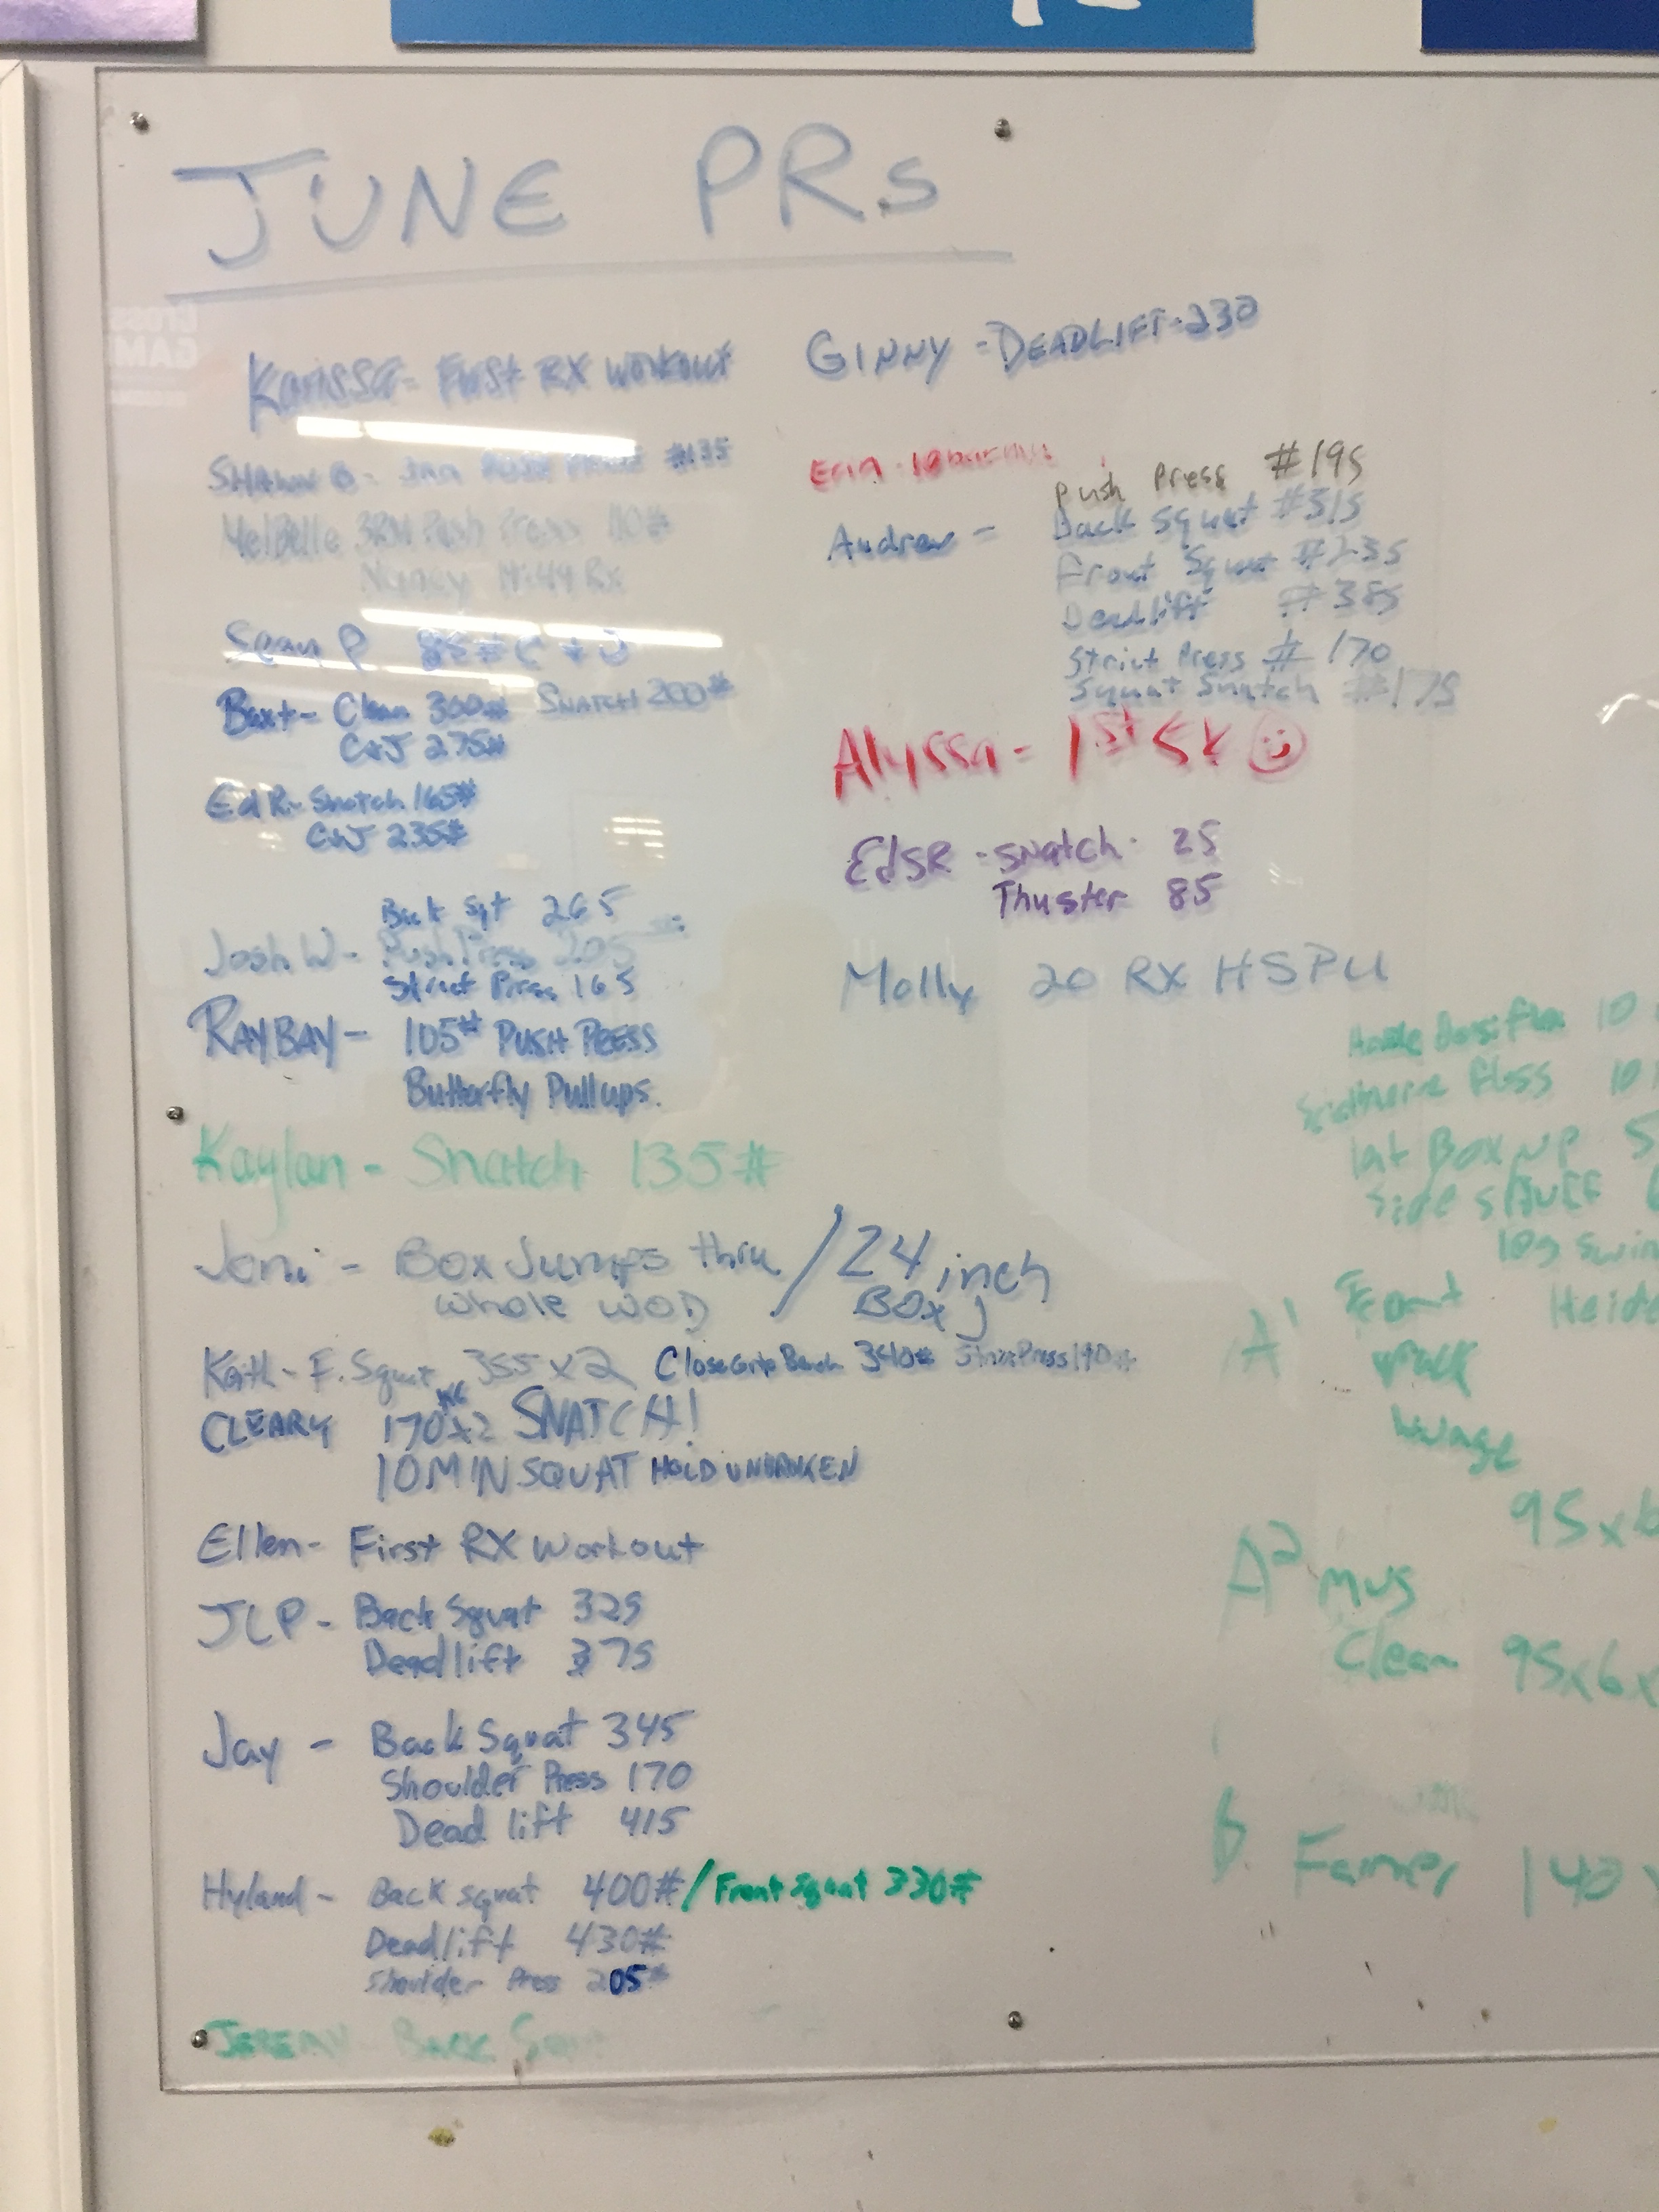 JUNE PRs
Karissa - First RX workout
SHAWN B - PUSH PRESS #135
MelBelle 3RM Push Press 110#
Nancy Rx
Sean P 85# C+J
Baxt - Clean 300# SNATCH 200#
C+J 275#
Ed R - Snatch 165#
C+J 235#
Back Sqt 265
Josh W - Push Press 205
Strict Press 165
RAYBAY - 105# PUSH PRESS
Butterfly Pullups.
Kaylan - Snatch 135#
Joni - Box Jumps thru / 24 inch
whole WOD BOx j
Keith - F. Squat 355 x 2 Close Grip Bench 340# Strict Press 190#
CLEARY 170x2 SNATCH!
10 MIN SQUAT HOLD UNBROKEN
Ellen - First RX Workout
JLP - Back Squat 325
Deadlift 375
Jay - Back Squat 345
Shoulder Press 170
Dead lift 415
Hyland - Back squat 400# / Front Squat 330#
Deadlift 430#
Shoulder Press 205#
JEREMY BACK
GINNY - DEADLIFT - 230
Erin - 10
Push Press #195
Andrew - Back Squat #315
Front Squat #235
Deadlift #385
Strict Press # 170
Squat Snatch #175
Alyssa - 1st 5K
EdSR - snatch - 25
Thuster 85
Molly 20 RX HSPU
10
floss 10
lat Box up 5
Side
leg swin
A1 Front
rack
lunage
95 x 6
A2 mus
Clean 95x6x
B Farmer 140